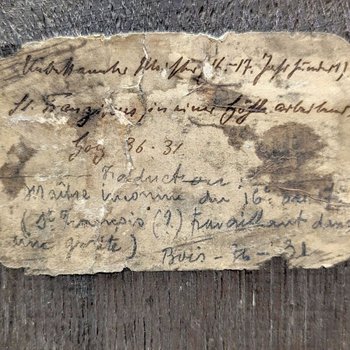 Unbekannter Meister 16.-17. Jahrhundert
St. Franziskus in einer Höhle arbeitend
Holz 36.31
Traduction :
Maître inconnu du 16e au
(St François (?) travaillant dans
une grotte)
Bois - 36 - 31